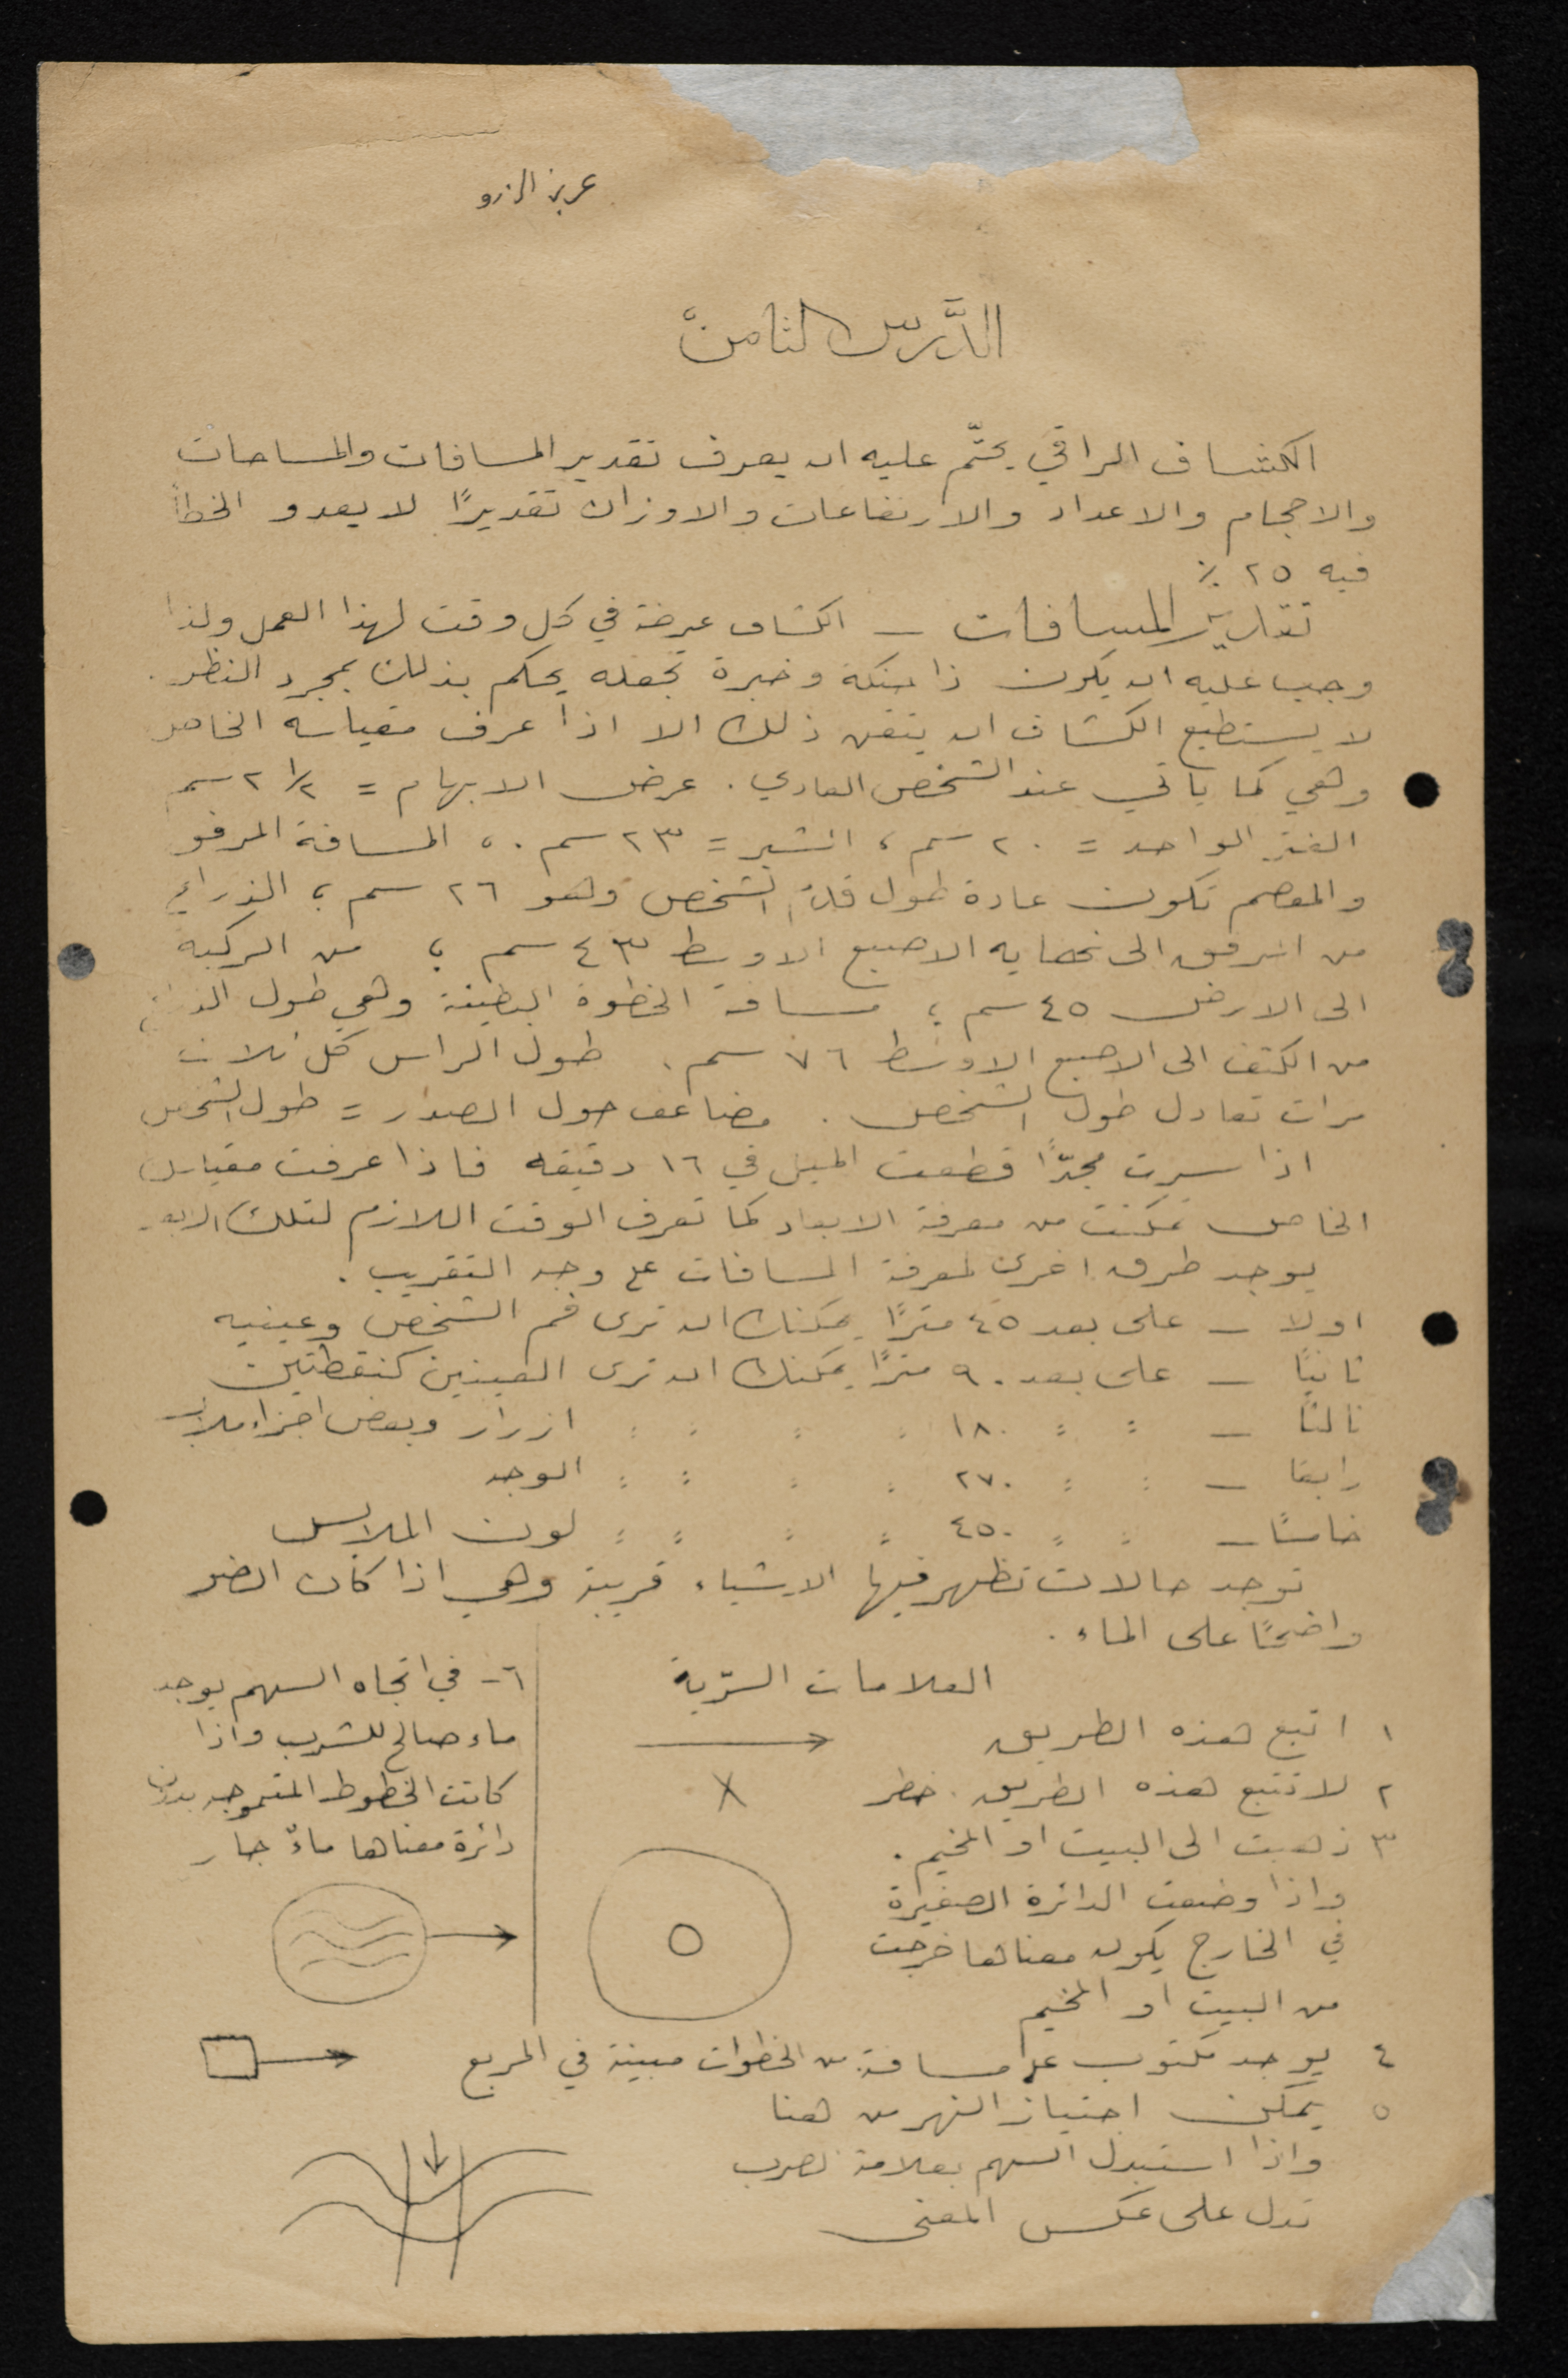 عزيز الزرو
الدَّرس الثامن
الكشاف الراقي يحتّم عليه ان يعرف تقدير المسافات والمساحات
والاحجام والاعداد والارتفاعات والاوزان تقديرًا لا يعدو الخطأ
فيه ٢٥ ٪
تقدير المسافات – الكشاف عرضة في كل وقت لهذا العمل ولذا
وجب عليه ان يكون ذا حنكة وخبرة تجعله يحكم بذلك بمجرد النظر .
لا يستطيع الكشاف ان يتقن ذلك الا اذا عرف مقياسه الخاص
وهي كما يأتي عند الشخص العادي . عرض الابهام = ٢ ١/٢ سم
الفتر الواحد = ٢٠ سم ، الشبر = ٢٣ سم . ، المسافة المرفو
والمعصم تكون عادة طول قدم الشخص وهو ٢٦ سم ؛ الذراع
من المرفق الى نهايه الاصبع الاوسط ٤٣ سم ؛ من الركبه
الى الارض ٤٥ سم ؛ مسافة الخطوة البطيئة وهي طول الذراع
من الكتف الى الاصبع الاوسط ٧٦ سم . طول الراس كل ثلاث
مرات تعادل طول الشخص . مضاعف حول الصدر = طول الشخص
اذا سرت مجدًّا قطعت الميل في ١٦ دقيقه فاذا عرفت مقياسك
الخاص تمكنت من معرفة الابعاد كما تعرف الوقت اللازم لتلك
يوجد طرق اخرى لمعرفة المسافات على وجه التقريب .
اولا – على بعد ٤٥ مترًا يمكنك ان ترى فم الشخص وعينيه
ثانيًا – على بعد ٩٠ مترًا يمكنك ان ترى العينين كنقطتين
ثالثا – : : ١٨٠ : : : : ازرار وبعض اجزاء ملابس
رابعا – : : ٢٧٠ : : : : الوجه
خامسًا – : : ٤٥٠ : : : : لون الملابس
توجد حالات تظهر فيها الاشياء قريبة وهي اذا كان الضو
واضحًا على الماء .
العلامات السرّية
١ اتبع هذه الطريق
٢ لا تتبع هذه الطريق . خطر
٣ ذهبت الى البيت او المخيم .
واذا وضعت الدائرة الصغيرة
في الخارج يكون معناها خرجت
من البيت او المخيم
٤ يوجد مكتوب على مسافة من الخطوات مبينة في المربع
٥ يمكن اجتياز النهر من هنا
واذا استبدل السهم بعلامة الضرب
تدل على عكس المعنى
٦ – في اتجاه السهم يوجد
ماء صالح للشرب واذا
كانت الخطوط المتموجه بدون
دائرة معناها ماءٌ جار